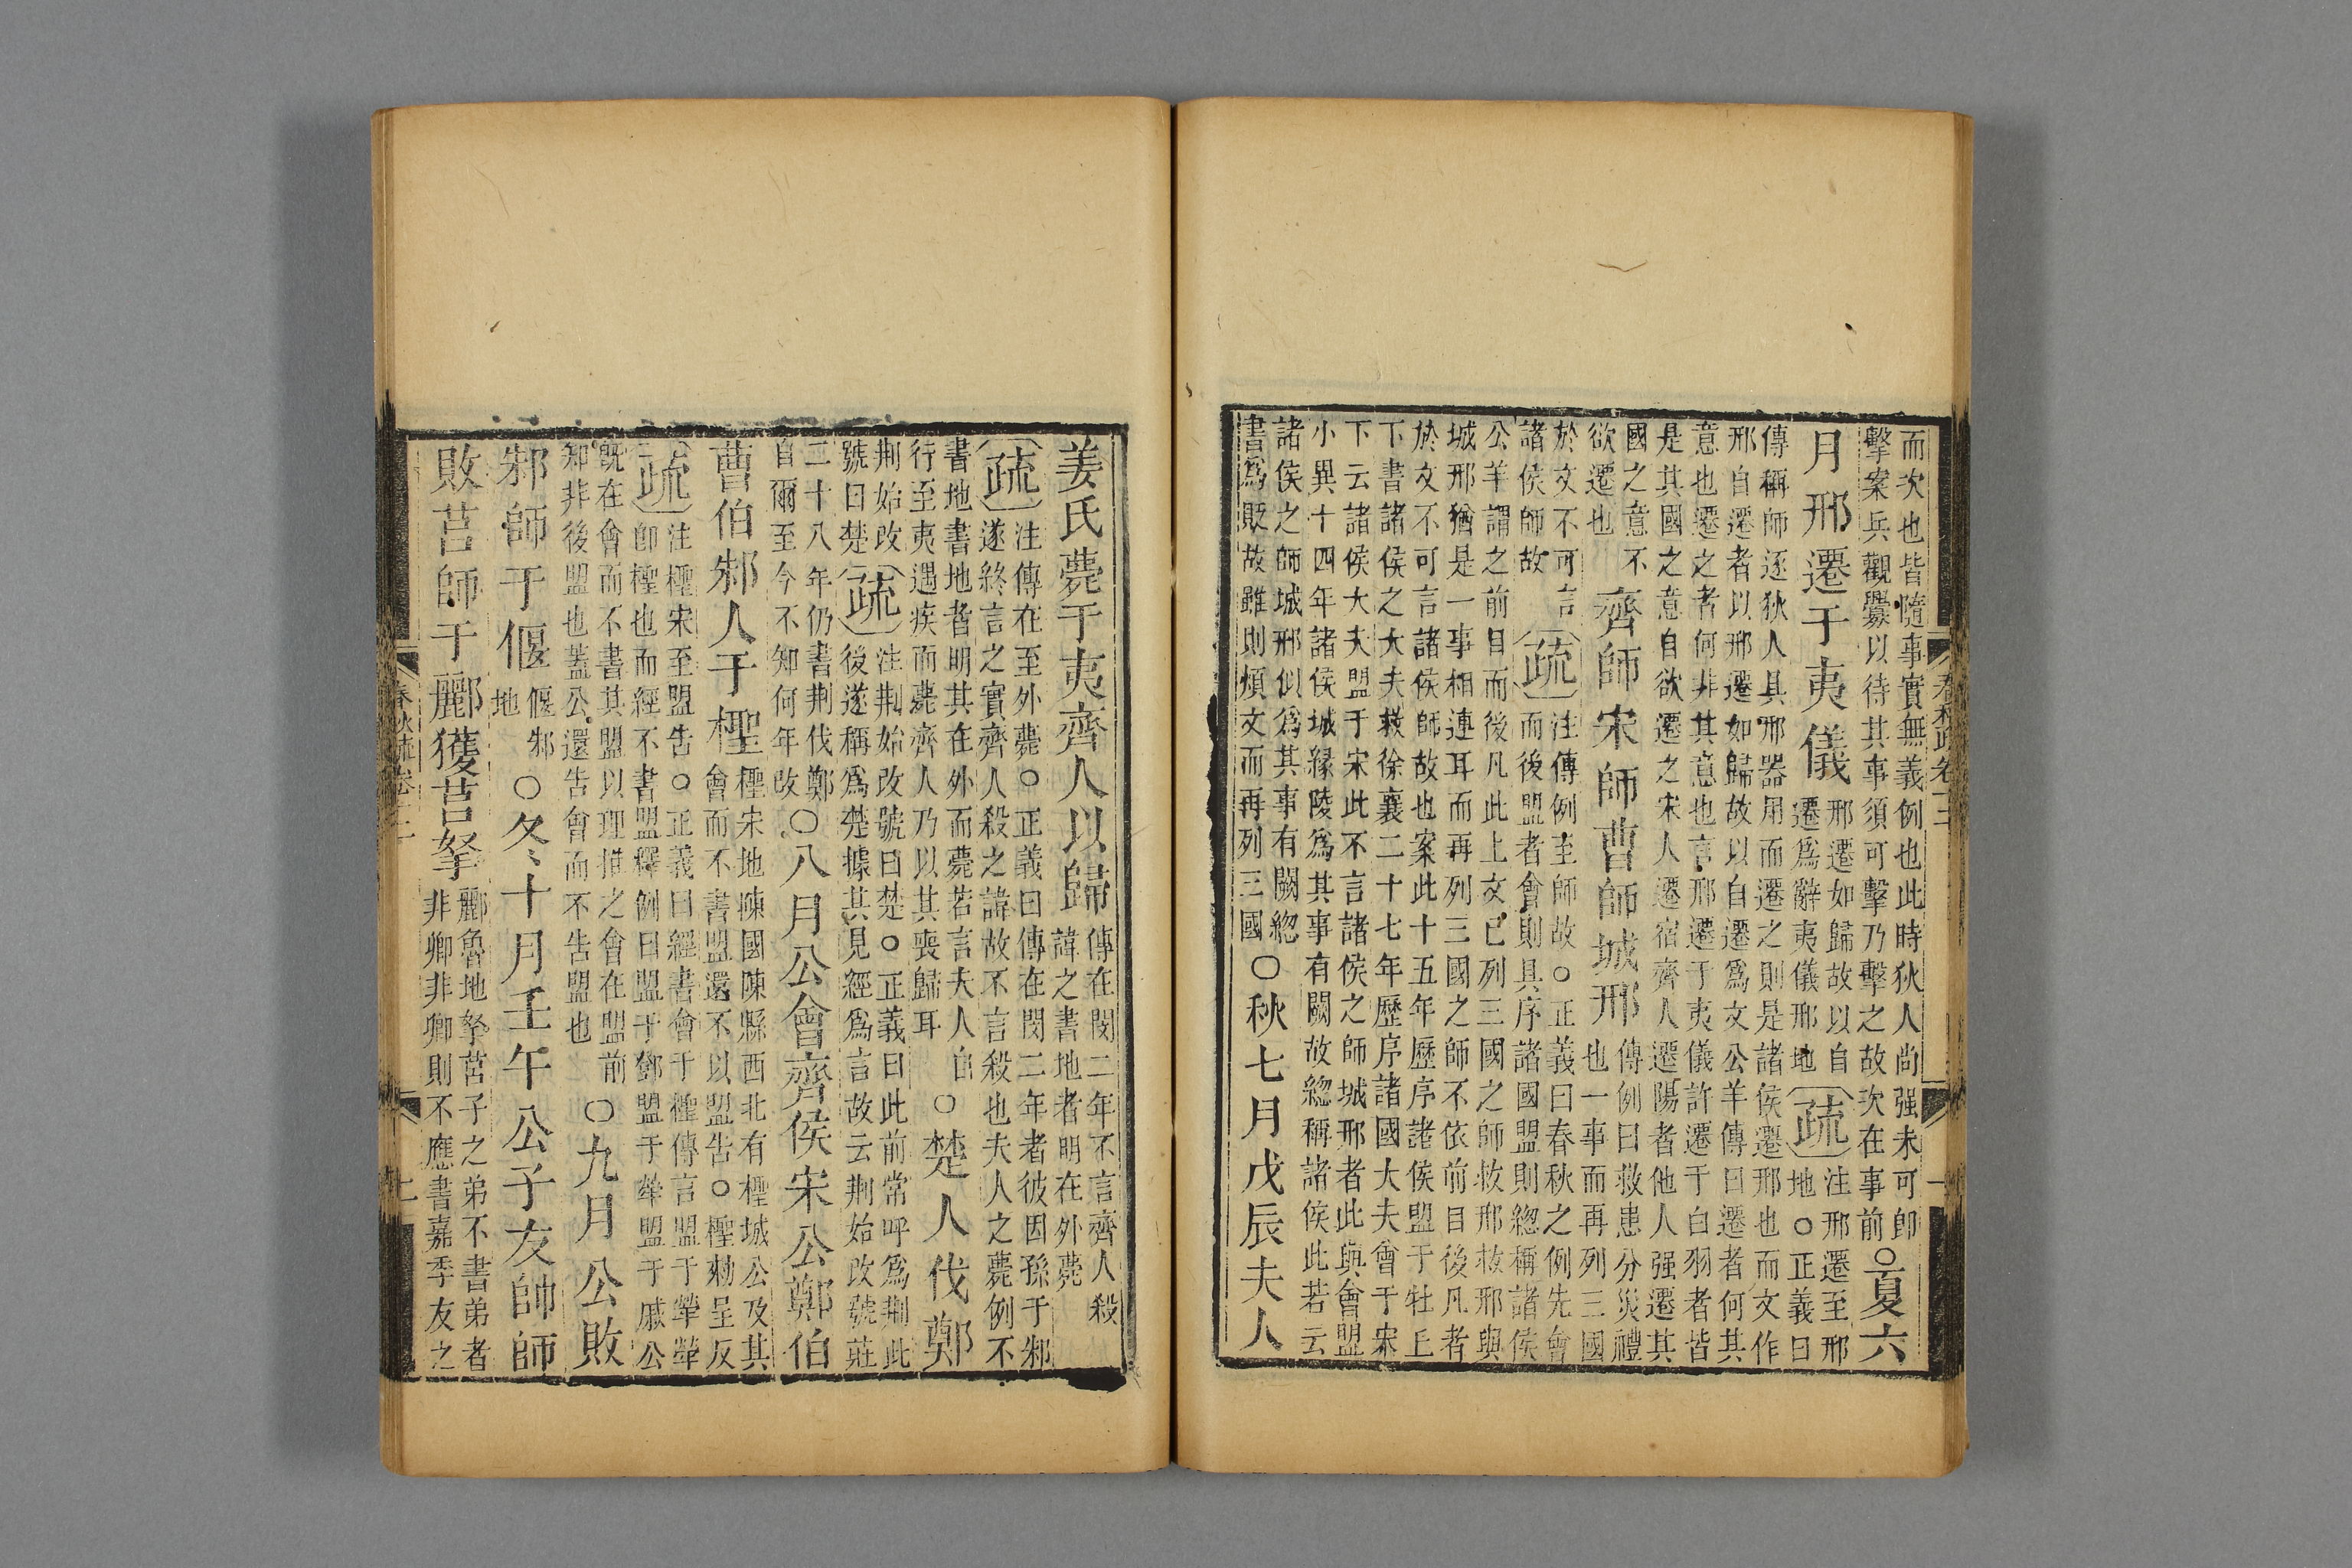 而次也皆隨事實無義例也此時狄人尚强未可卽
擊案兵觀釁以待其事須可擊乃擊之故次在事前
○夏六
月邢遷于夷儀
邢遷如歸故以自
遷爲辭夷儀邢地
疏
注邢遷至邢
地○正義曰
傳稱師逐狄人具邢器用而遷之則是諸侯遷邢也而文作
邢自遷者以邢遷如歸故以自遷爲文公羊傳曰遷者何其
意也遷之者何非其意也言邢遷于夷儀許遷于白羽者皆
是其國之意自欲遷之宋人遷宿齊人遷陽者他人强遷其
國之意不
欲遷也
齊師宋師曹師城邢
傳例曰救患分災禮
也一事而再列三國
於文不可言
諸侯師故
疏
注傳例至師故○正義曰春秋之例先會
而後盟者會則具序諸國盟則總稱諸侯
公羊謂之前目而後凡此上文已列三國之師救邢救邢與
城邢猶是一事相連耳而再列三國之師不依前目後凡者
於文不可言諸侯師故也案此十五年歷序諸侯盟于牡丘
下書諸侯之大夫救徐襄二十七年歷序諸國大夫會于宋
下云諸侯大夫盟于宋此不言諸侯之師城邢者此與會盟
小異十四年諸侯城緣陵爲其事有闕故總稱諸侯此若云
諸侯之師城邢似爲其事有闕總
書爲貶故雖則煩文而再列三國
○秋七月戊辰夫人
姜氏薨于夷齊人以歸
傳在閔二年不言齊人殺
諱之書地者明在外薨
疏
注傳在至外薨○正義曰傳在閔二年者彼因孫于邾
遂終言之實齊人殺之諱故不言殺也夫人之薨例不
書地書地者明其在外而薨若言夫人自
行至夷遇疾而薨齊人乃以其喪歸耳
○楚人伐鄭
荆始改
號曰楚
疏
注荆始改號曰楚○正義曰此前常呼爲荆此
後遂稱爲楚據其見經爲言故云荆始改號莊
二十八年仍書荆伐鄭
自爾至今不知何年改
○八月公會齊侯宋公鄭伯
曹伯邾人于檉
檉宋地陳國陳縣西北有檉城公及其
會而不書盟還不以盟告○檉勑呈反
疏
注檉宋至盟告○正義曰經書會于檉傳言盟于犖犖
卽檉也而經不書盟釋例曰盟于鄧盟于犖盟于戚公
旣在會而不書其盟以理推之會在盟前
知非後盟也蓋公還告會而不告盟也
○九月公敗
邾師于偃
偃邾
地
○冬十月壬午公子友帥師
敗莒師于酈獲莒挐
酈魯地挐莒子之弟不書弟者
非卿非卿則不應書嘉季友之
春秋疏卷十二